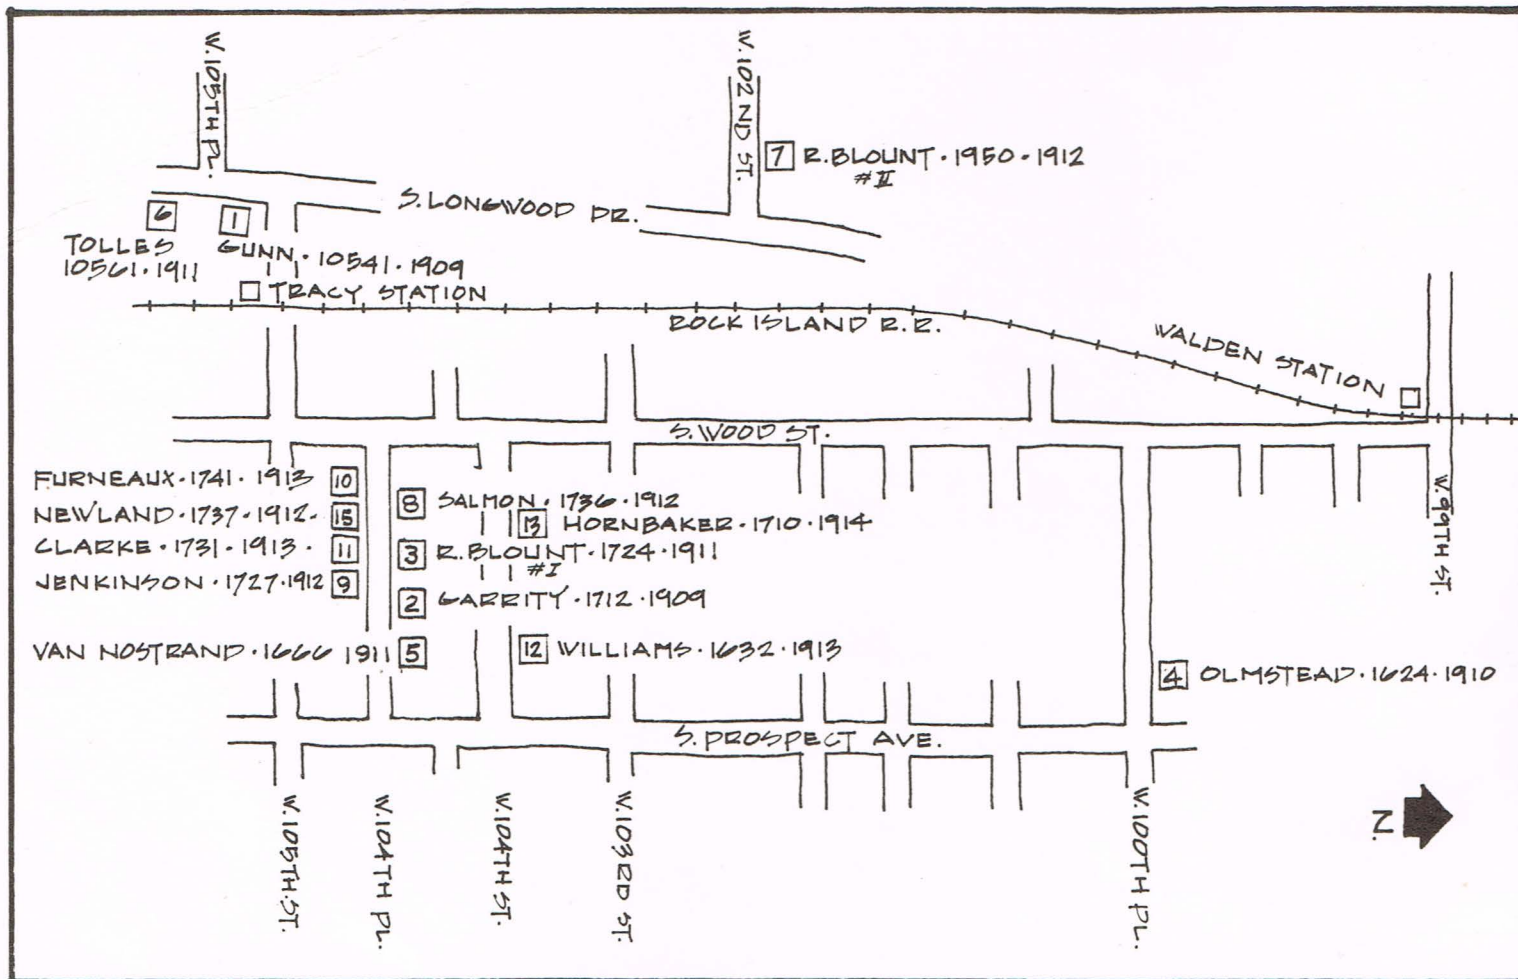 W. 105TH PL.
W. 102ND ST.
7 R. BLOUNT · 1950 · 1912
#II
S. LONGWOOD DR.
6
1
TOLLES
10561 · 1911
GUNN · 10541 · 1909
TRACY STATION
ROCK ISLAND R.R.
WALDEN STATION
S. WOOD ST.
W. 99TH ST.
FURNEAUX · 1741 · 1913 10
NEWLAND · 1737 · 1912 · 15
CLARKE · 1731 · 1913 · 11
JENKINSON · 1727 · 1912 9
8 SALMON · 1736 · 1912
13 HORNBAKER · 1710 · 1914
3 R. BLOUNT · 1724 · 1911
#I
2 GARRITY · 1712 · 1909
VAN NOSTRAND · 1666 1911 5
12 WILLIAMS · 1632 · 1913
4 OLMSTEAD · 1624 · 1910
S. PROSPECT AVE.
W. 105TH ST.
W. 104TH PL.
W. 104TH ST.
W. 103RD ST.
W. 100TH PL.
N